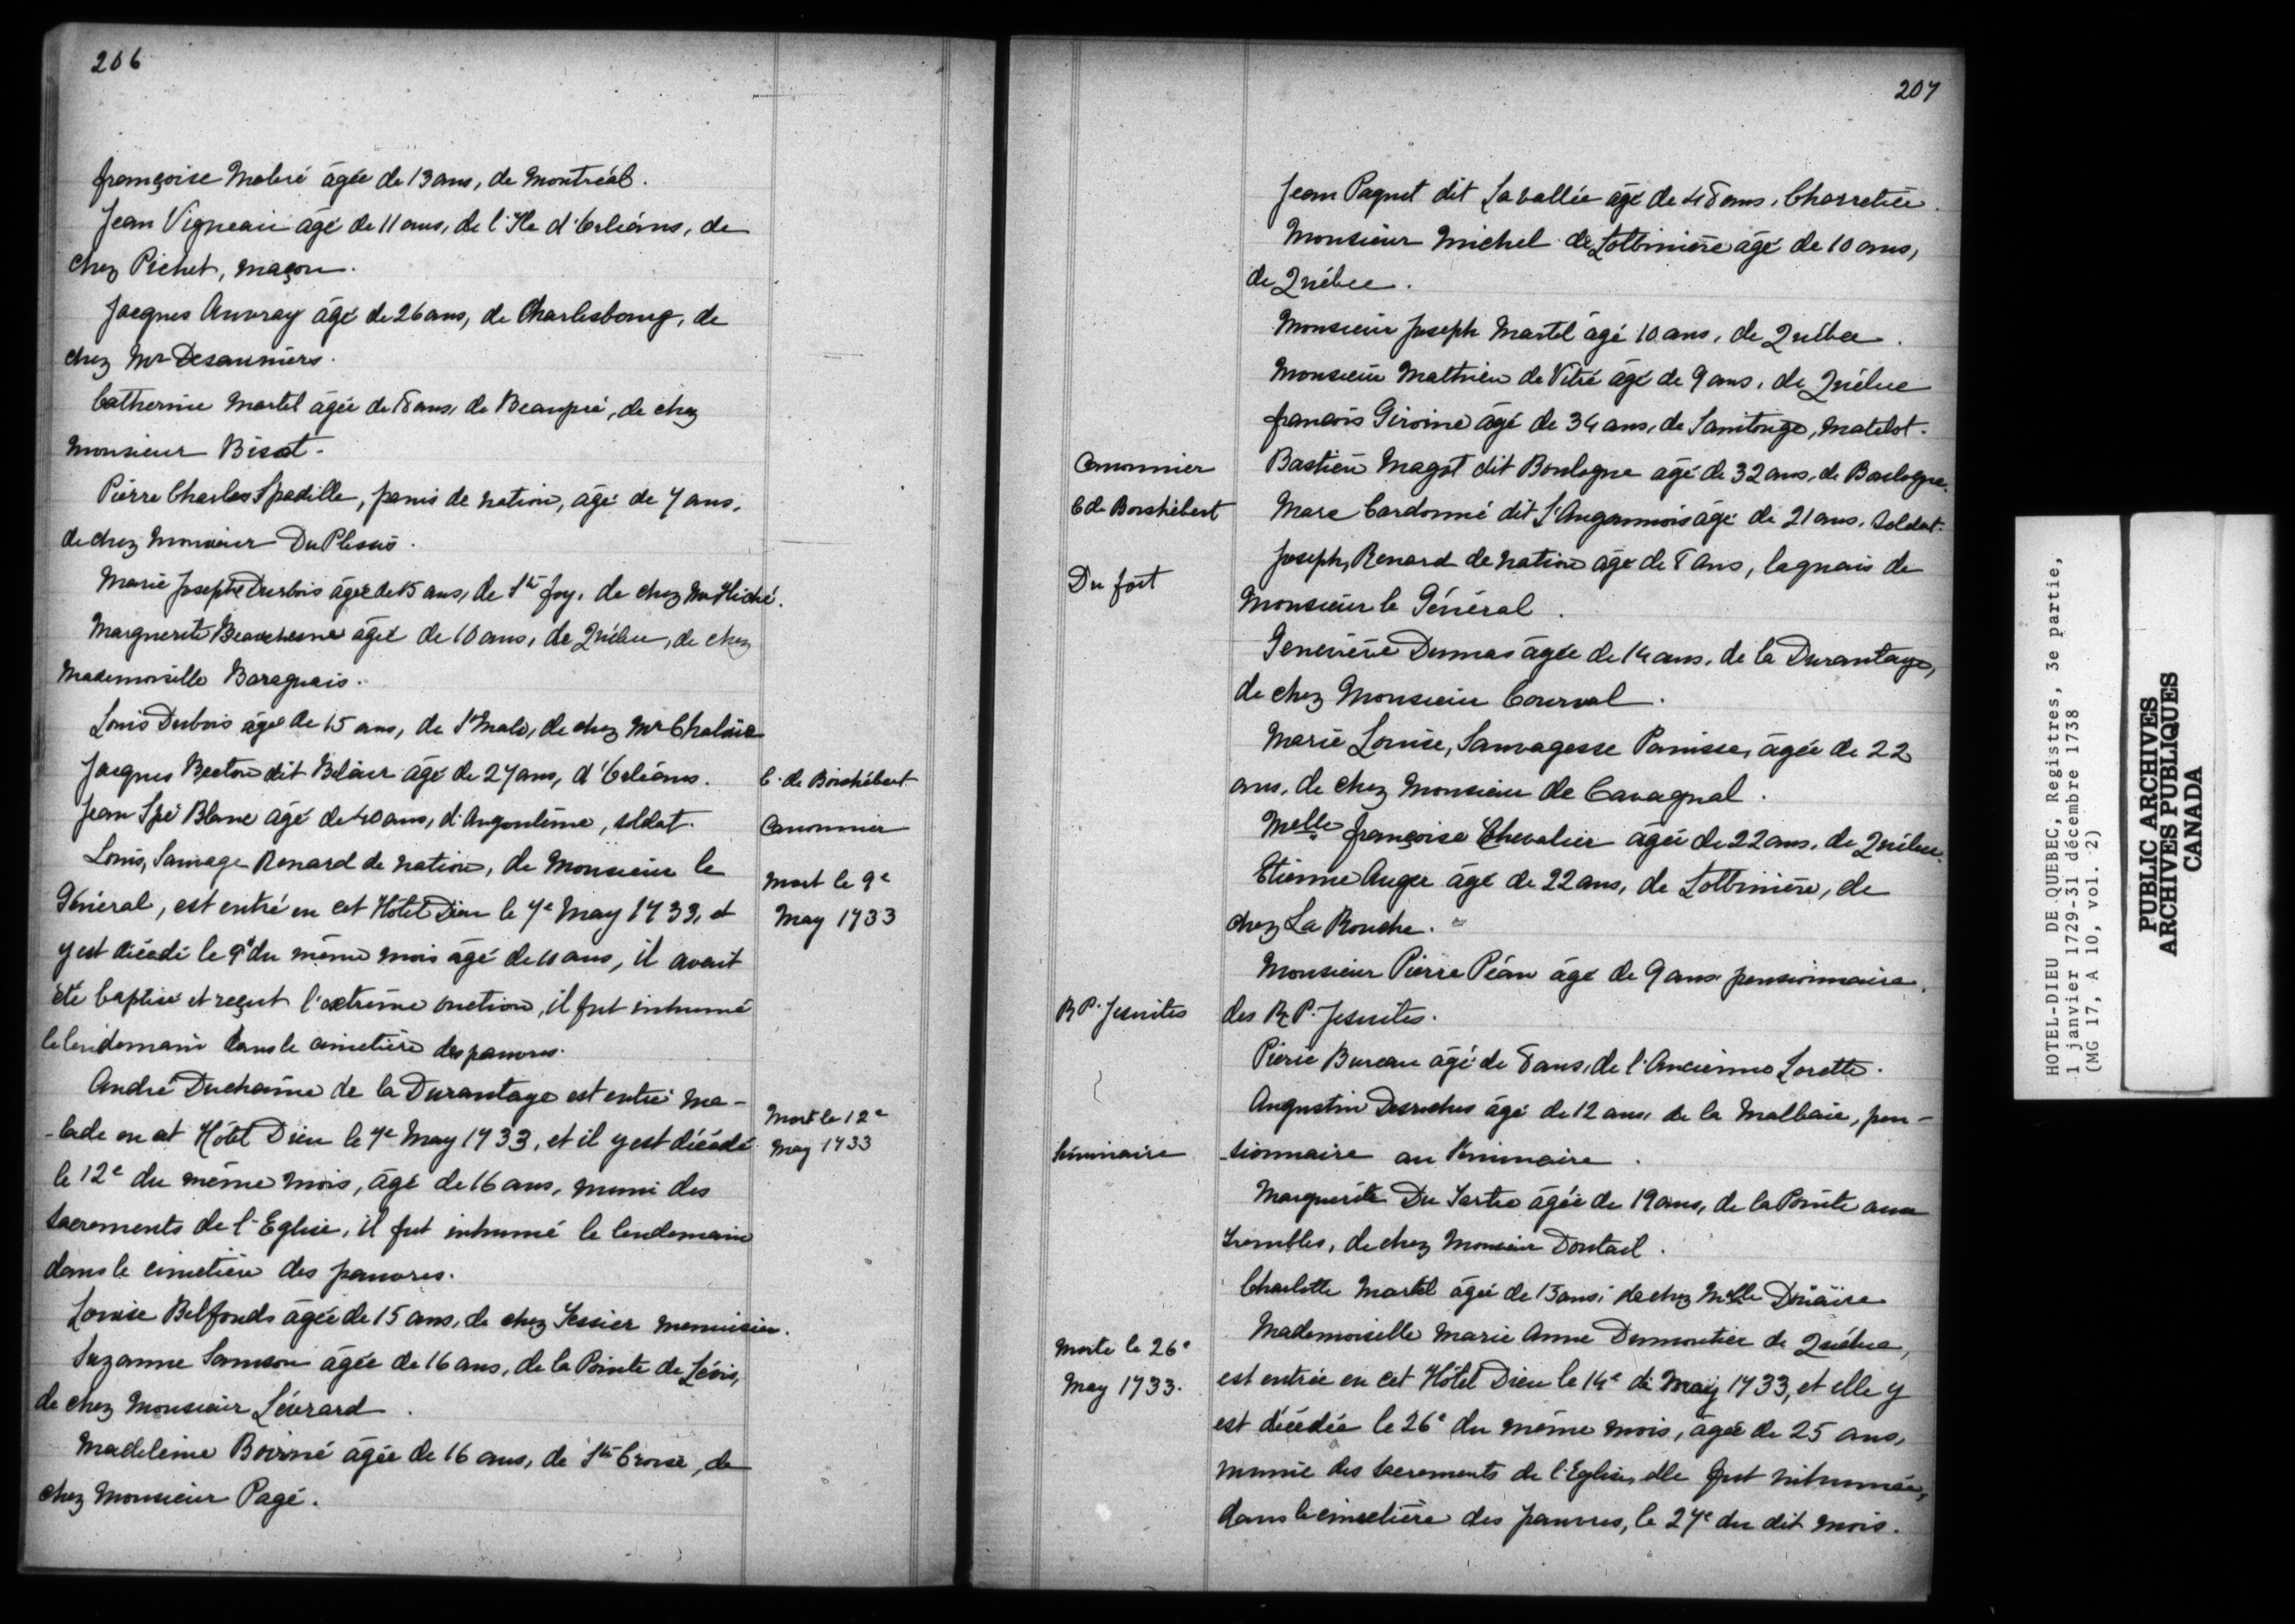 206
françoise Mabré âgée de 13 ans, de Montréal.
Jean Vigneau âgé de 11 ans, de l'Ile d'Orléans, de
chez Pichet, maçon.
Jacques Auvray âgé de 26 ans, de Charlesbourg, de
chez Mr Desauniers.
Catherine Martel âgée de 8 ans, de Beaupré, de chez
Monsieur Bisot.
Pierre Charles Spadille, panis de nation, âgé de 7 ans,
de chez Monsieur Du Plessis.
Marie Josephe Durbois âgée de 15 ans, de Ste foy, de chez Mr Hiché.
Marguerite Beauchesne âgée de 10 ans, de Québec, de chez
Mademoiselle Baraguais.
Louis Dubois âgé de 15 ans, de St Malo, de chez Mr
Jacques Becton dit Belair âgé de 27 ans, d'Orléans.
C. de Boishébert
Jean Blanc âgé de 40 ans, d'Angoulême, soldat.
Canonnier
Louis, Sauvage Renard de nation, de Monsieur le
Général, est entré en cet Hôtel Dieu le 7e May 1733, et
y est décédé le 9e du même mois âgé de 10 ans, il avait
été baptisé et reçut l'extrême onction, il fut inhumé
le lendemain dans le cimetière des pauvres.
Mort le 9e
May 1733
André Duchaine de la Durantage est entré ma-
-lade en cet Hôtel Dieu le 7e May 1733, et il y est décédé
le 12e du même mois, âgé de 16 ans, muni des
sacrements de l'Eglise, il fut inhumé le lendemain
dans le cimetière des pauvres.
Mort le 12e
May 1733
Louise Belfonds âgée de 15 ans, de chez Tessier menuisier.
Suzanne Samson âgée de 16 ans, de la Pointe de Lévis,
de chez Monsieur Lévrard.
Madeleine Boirné âgée de 16 ans, de Ste Croix, de
chez Monsieur Pagé.
207
Jean Paquet dit Lavallée âgé de 48 ans, Charretier.
Monsieur Michel de Lotbinière âgé de 10 ans,
de Québec.
Monsieur Joseph Martel âgé 10 ans, de Québec.
Monsieur Mathieu de Vitré âgé de 9 ans, de Québec
francois Giroine âgé de 34 ans, de Saintonge, Matelot.
Canonnier
Bastien Magot dit Boulogne âgé de 32 ans, de Boulogne.
C de Boishébert
Marc Cardonné dit L'Angoumois âgé de 21 ans, Soldat.
Du fort
Joseph, Renard de nation âgé de 8 ans, laquais de
Monsieur le Général.
Geneviève Dumas âgée de 14 ans, de la Durantaye,
de chez Monsieur Courval.
Marie Louise, Sauvagesse Panisse, âgée de 22
ans, de chez Monsieur de Cavagnal.
Melle françoise Chevalier âgée de 22 ans, de Québec.
Etienne Auger âgé de 22 ans, de Lotbinière, de
chez La Rouche.
Monsieur Pierre Péan âgé de 9 ans pensionnaire
R P. Jesuites
des R. P. Jesuites.
Pierre Bureau âgé de 8 ans, de l'Ancienne Lorette.
Augustin Desruches âgé de 12 ans, de la Malbaie, pen-
Séminaire
-sionnaire au Séminaire.
Marguerite Du Tartre âgée de 19 ans, de la Pointe aux
Trembles, de chez Monsieur Dontail.
Charlotte Martel âgée de 13 ans, de chez Melle
Morte le 26e
May 1733.
Mademoiselle Marie Anne Dumontier de Québec,
est entrée en cet Hôtel Dieu le 14e de May 1733, et elle y
est décédée le 26e du même mois, âgée de 25 ans,
munie des sacrements de l'Eglise, elle fut inhumée,
dans le cimetière des pauvres, le 27e du dit mois.
HOTEL-DIEU DE QUEBEC, Registres, 3e partie,
1 janvier 1729-31 décembre 1738
(MG 17, A 10, vol. 2)
PUBLIC ARCHIVES
ARCHIVES PUBLIQUES
CANADA